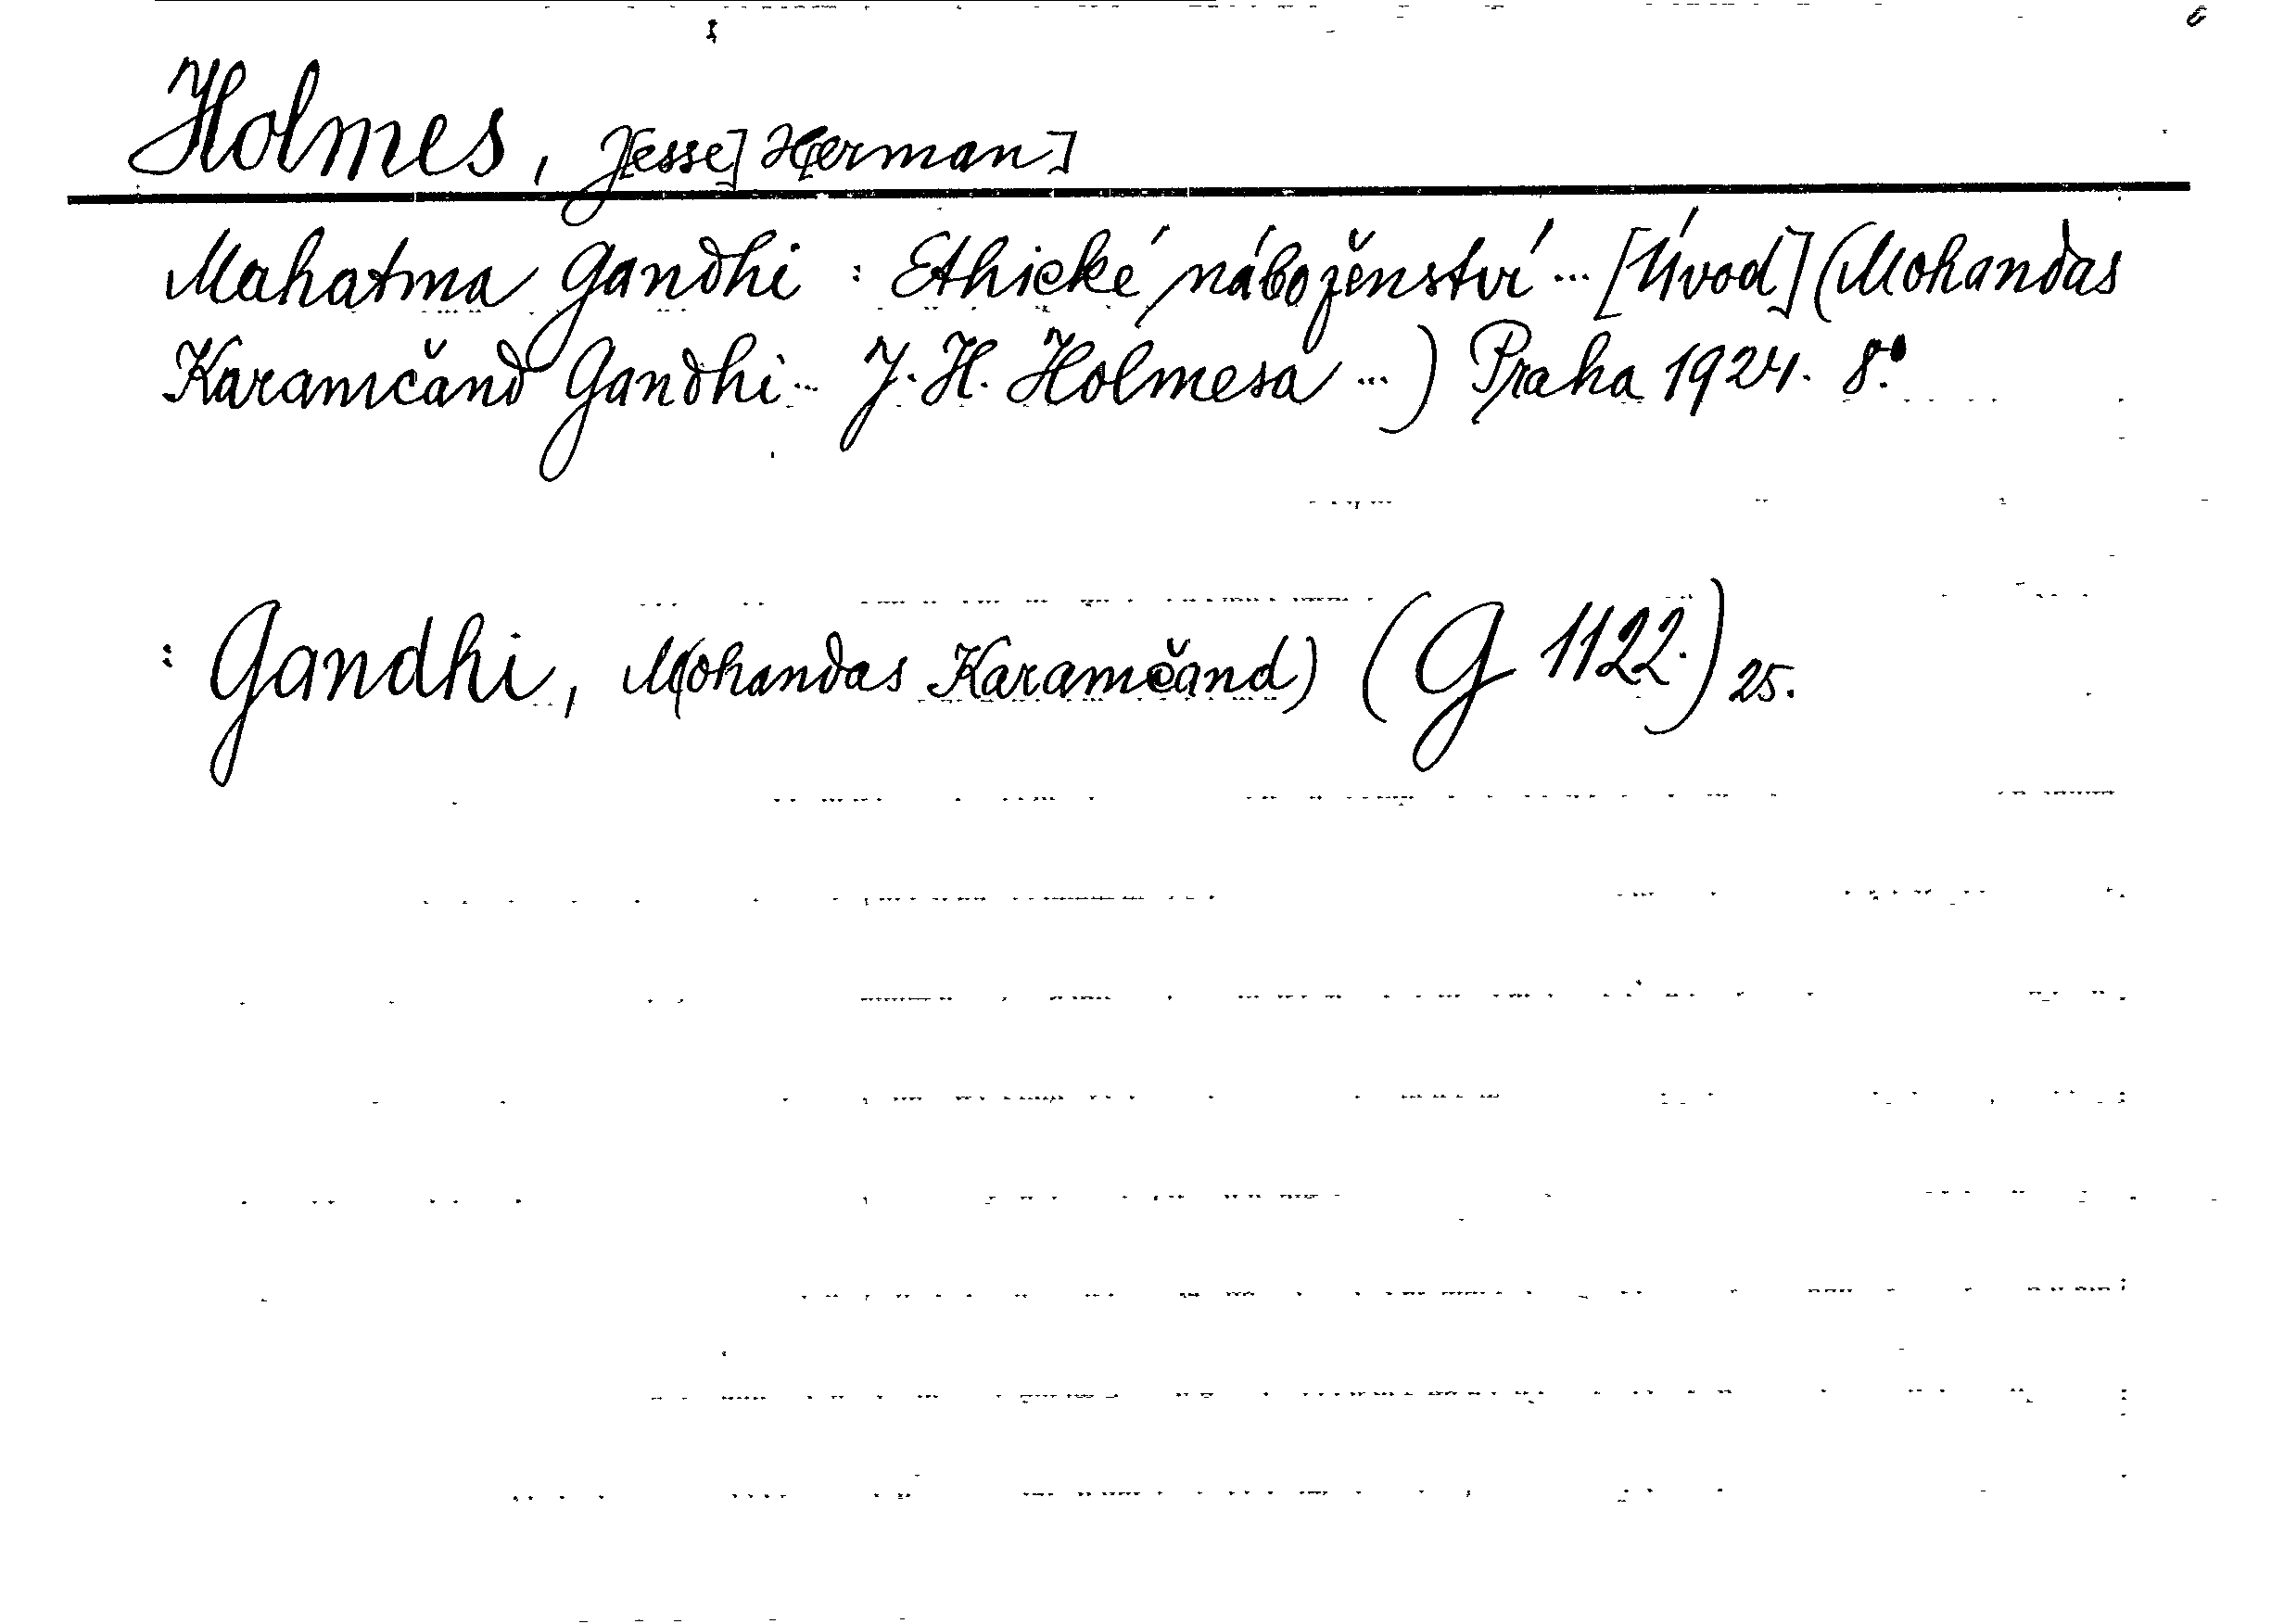 Holmes, J[esse] H[erman]
Mahatma Gandhi : Ethické náboženství ... [Úvod] (Mohandas
Karamčand Gandhi ... J. H. Holmesa ...) Praha 1924. 8.°
: Gandhi, M(ohandas Karamčand) (G 1122.) 25.